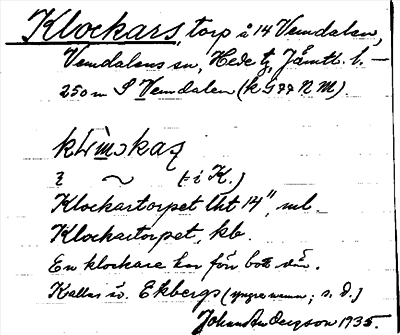 Klockars, torp å 14 Vemdalen,
Vemdalens sn, Hede tg, Jämtl. l. —
250 m S Vemdalen (k G NM).
~ (: i K.)
Klockartorpet lht 14", ml.
Klockartorpet, kb.
En klockare har förr bott där.
Kallas äv. Ekbergs (yngre namn; s. d.)
Johan Anderson 1935.